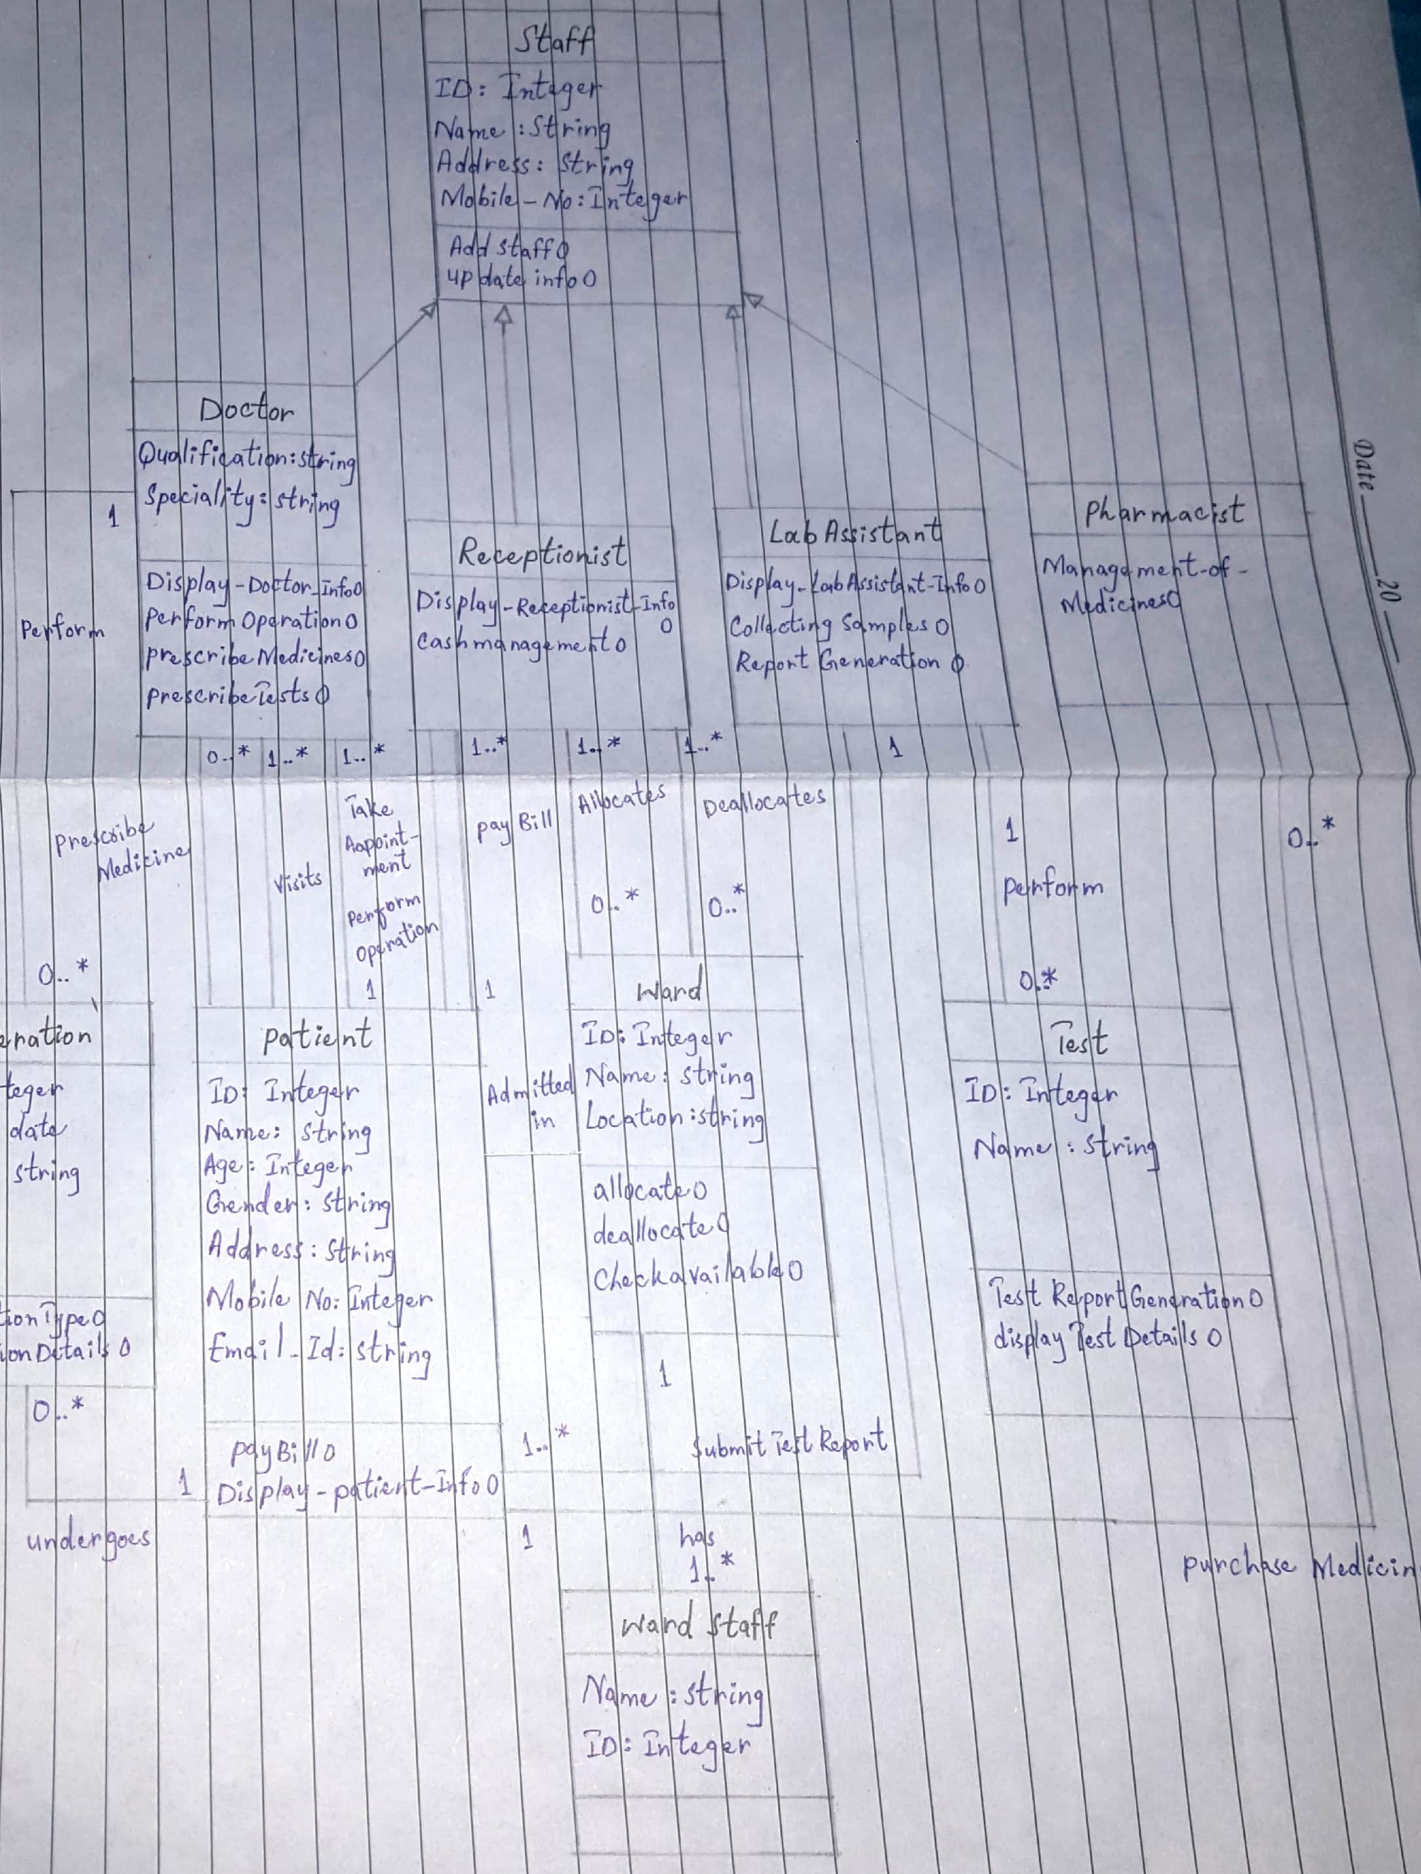 Staff
ID: Integer
Name: String
Address: String
Mobile-No: Integer
Add staff()
update info()
Date 20
Doctor
Qualification: string
Speciality: string
Display-Doctor-Info()
Perform Operation()
prescribe Medicines()
prescribe Tests()
Receptionist
Display-Receptionist-Info
()
Cash management()
Lab Assistant
Display-Lab Assistant-Info()
Collecting Samples()
Report Generation()
Pharmacist
Management-of-
Medicines()
1
Perform
0..*
1..*
1..*
1..*
1..*
1..*
1
Prescribe
Medicine
Visits
Take
Aapoint-
ment
Perform
Operation
pay Bill
Allocates
Deallocates
0..*
0..*
1
perform
0..*
0..*
0..*
1
1
eration
teger
date
string
tionType()
ionDetails()
0..*
undergoes
1
patient
ID: Integer
Name: String
Age: Integer
Gender: String
Address: String
Mobile No: Integer
Email-Id: string
pay Bill()
Display-patient-Info()
Admitted
in
Ward
ID: Integer
Name: string
Location: string
allocate()
deallocate()
Checkavailable()
1
Test
ID: Integer
Name: string
Test Report Generation()
display Test Details()
1..*
Submit Test Report
1
has
1..*
purchase Medicin
ward staff
Name: string
ID: Integer